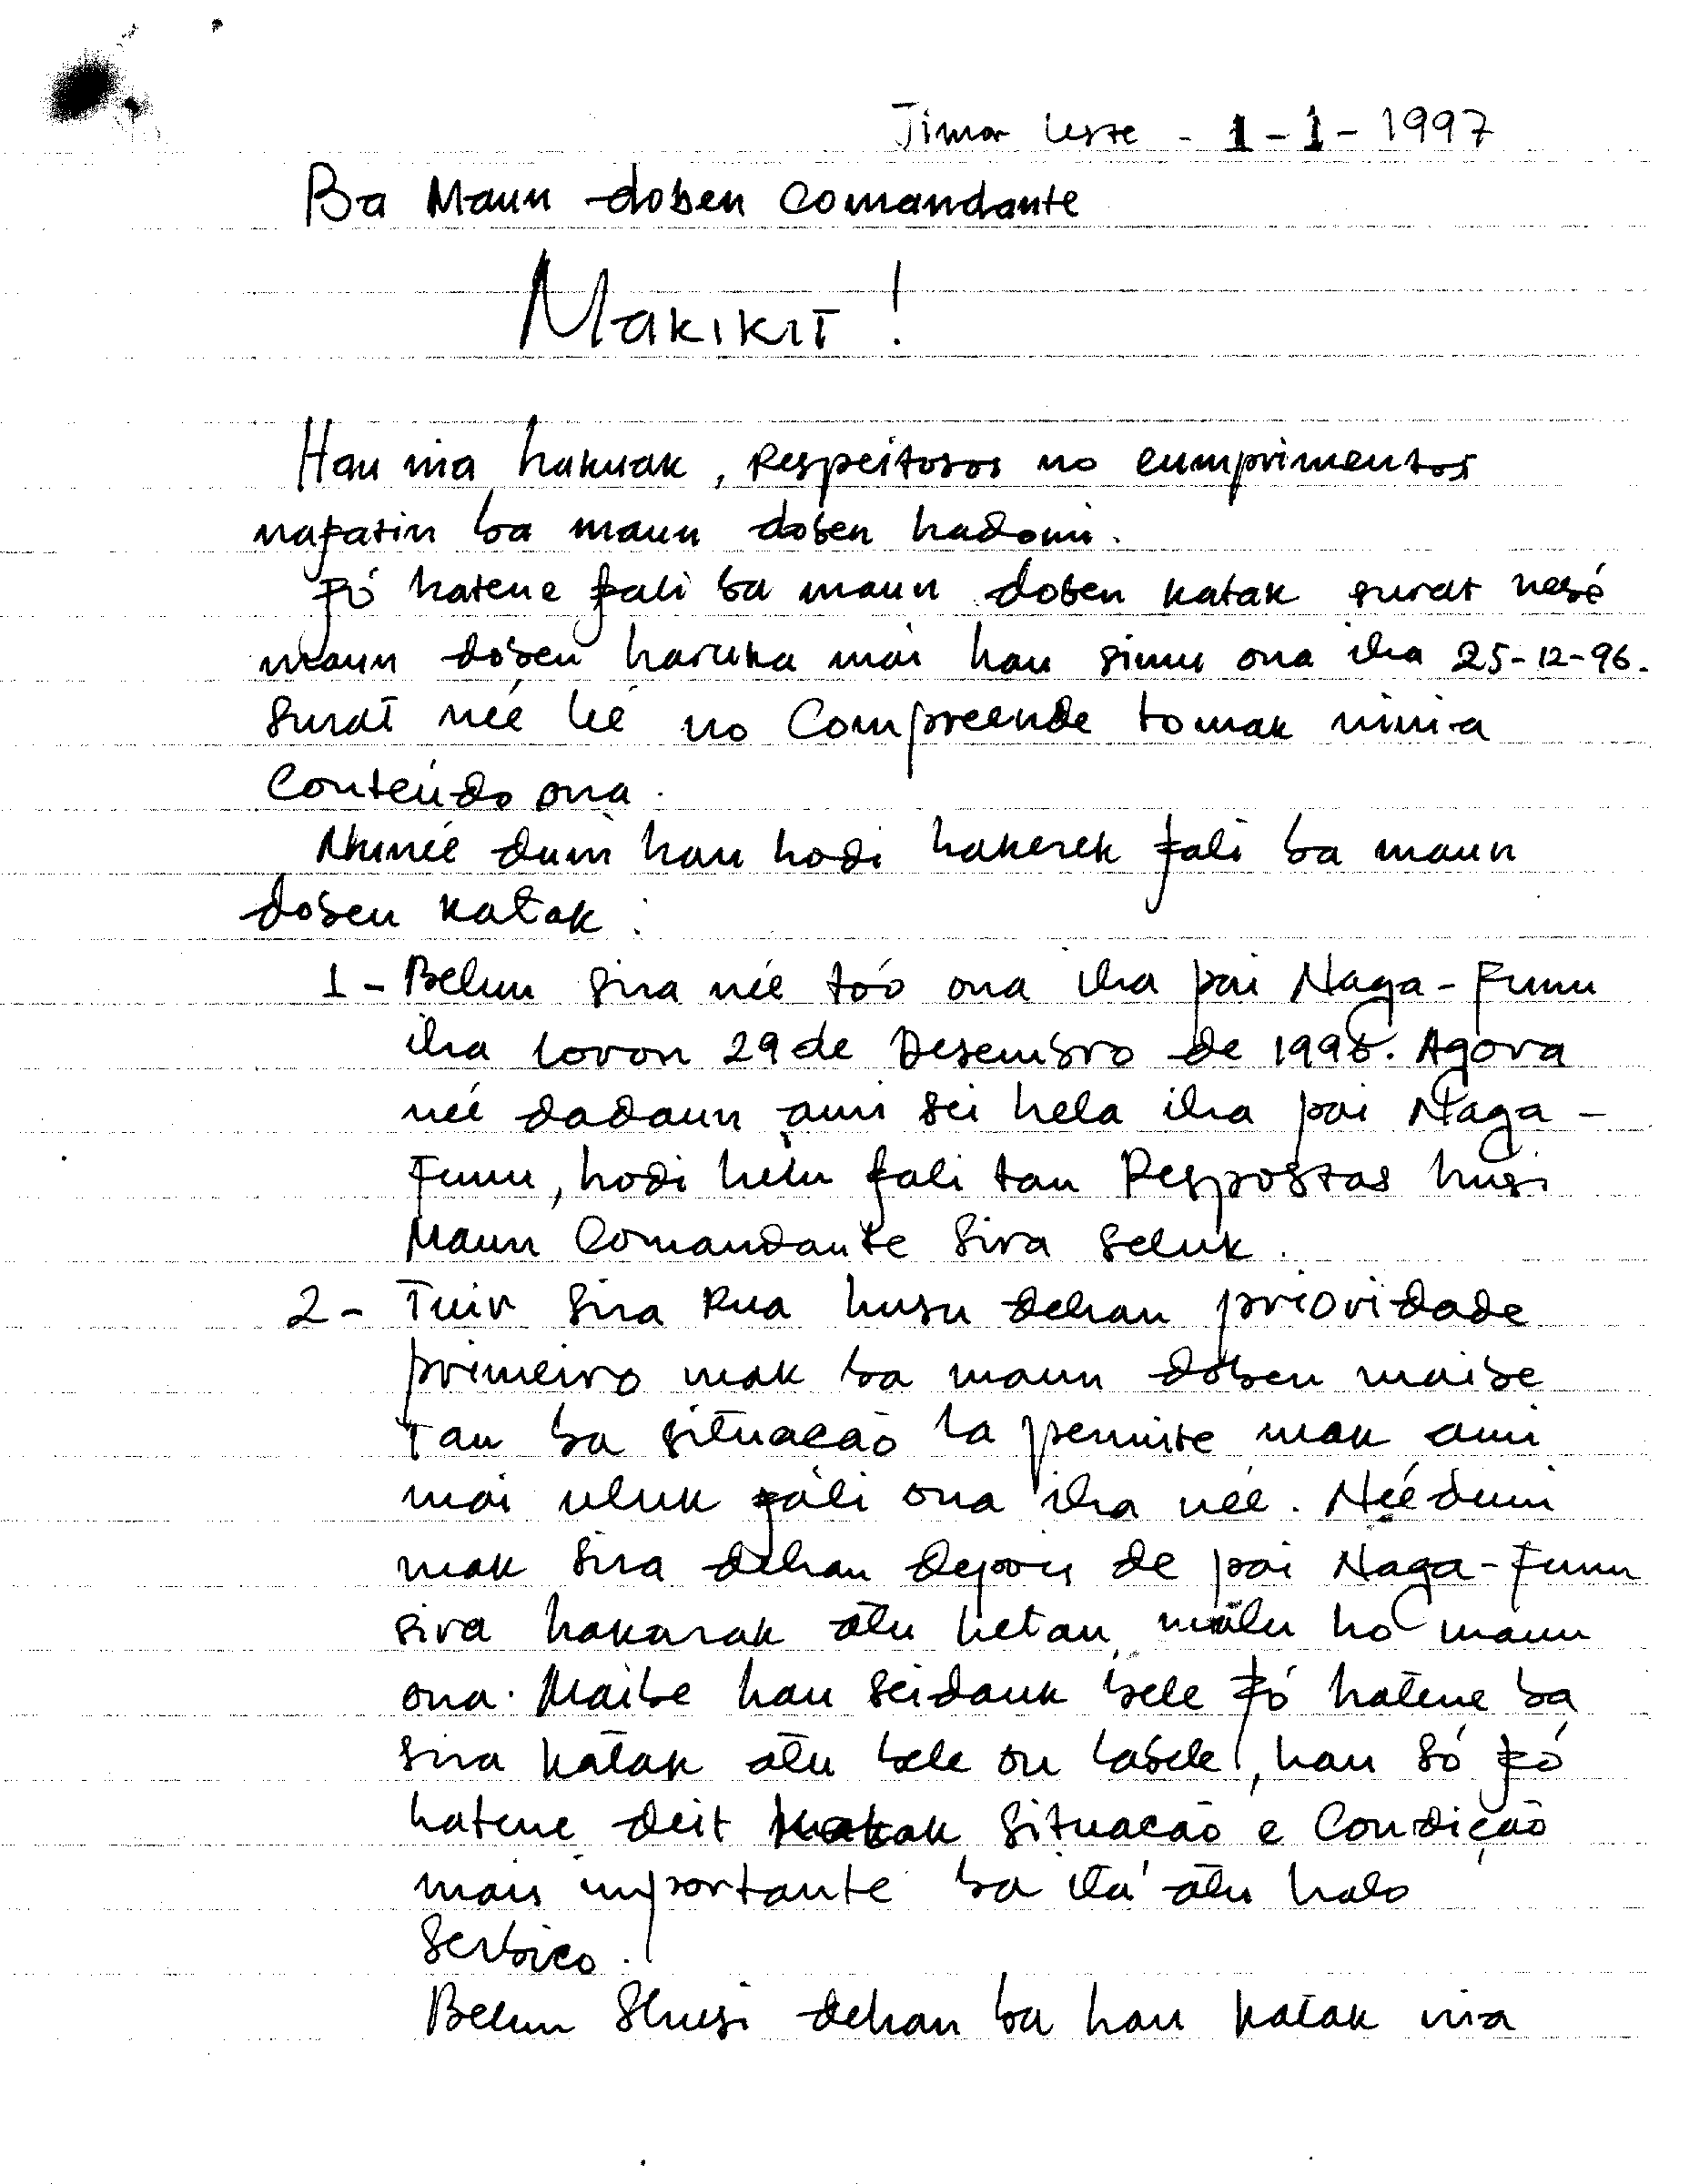 Timor Leste - 1-1-1997
Ba Maun doben Comandante
MAKIKIT!
Hau nia hakuak, Respeitosos no cumprimentos
nafatin ba maun doben hadomi.
Fó hatene fali ba maun doben katak surat nebé
maun doben haruka mai hau simu ona iha 25-12-96.
Surat neé lé no Compreende tomak ninia
Conteúdo ona.
Nuneé duni hau hodi hakerek fali ba maun
doben katak:
1 - Belun sira neé tóo ona iha pai Naga-Funu
iha loron 29 de Desembro de 1996. Agora
neé dadaun ami sei hela iha pai Naga-
Funu, hodi hein fali tan Respostas husi
Maun Comandante Sira Seluk.
2 - Tuir Sira Rua husu dehan prioridade
primeiro mak ba maun doben maibe
Tan ba situacão la permite mak ami
mai uluk fali ona iha neé. Neéduni
mak Sira dehan depois de pai Naga-Funu
sira hakarak atu hetan malu ho maun
ona. Maibe hau seidauk bele fó hatene ba
sira katak atu bele ou labele, hau só fó
hatene deit katak situacão e Condição
mais importante ba ita atu halo
Serbico.
Belun Shusi dehan ba hau katak nia